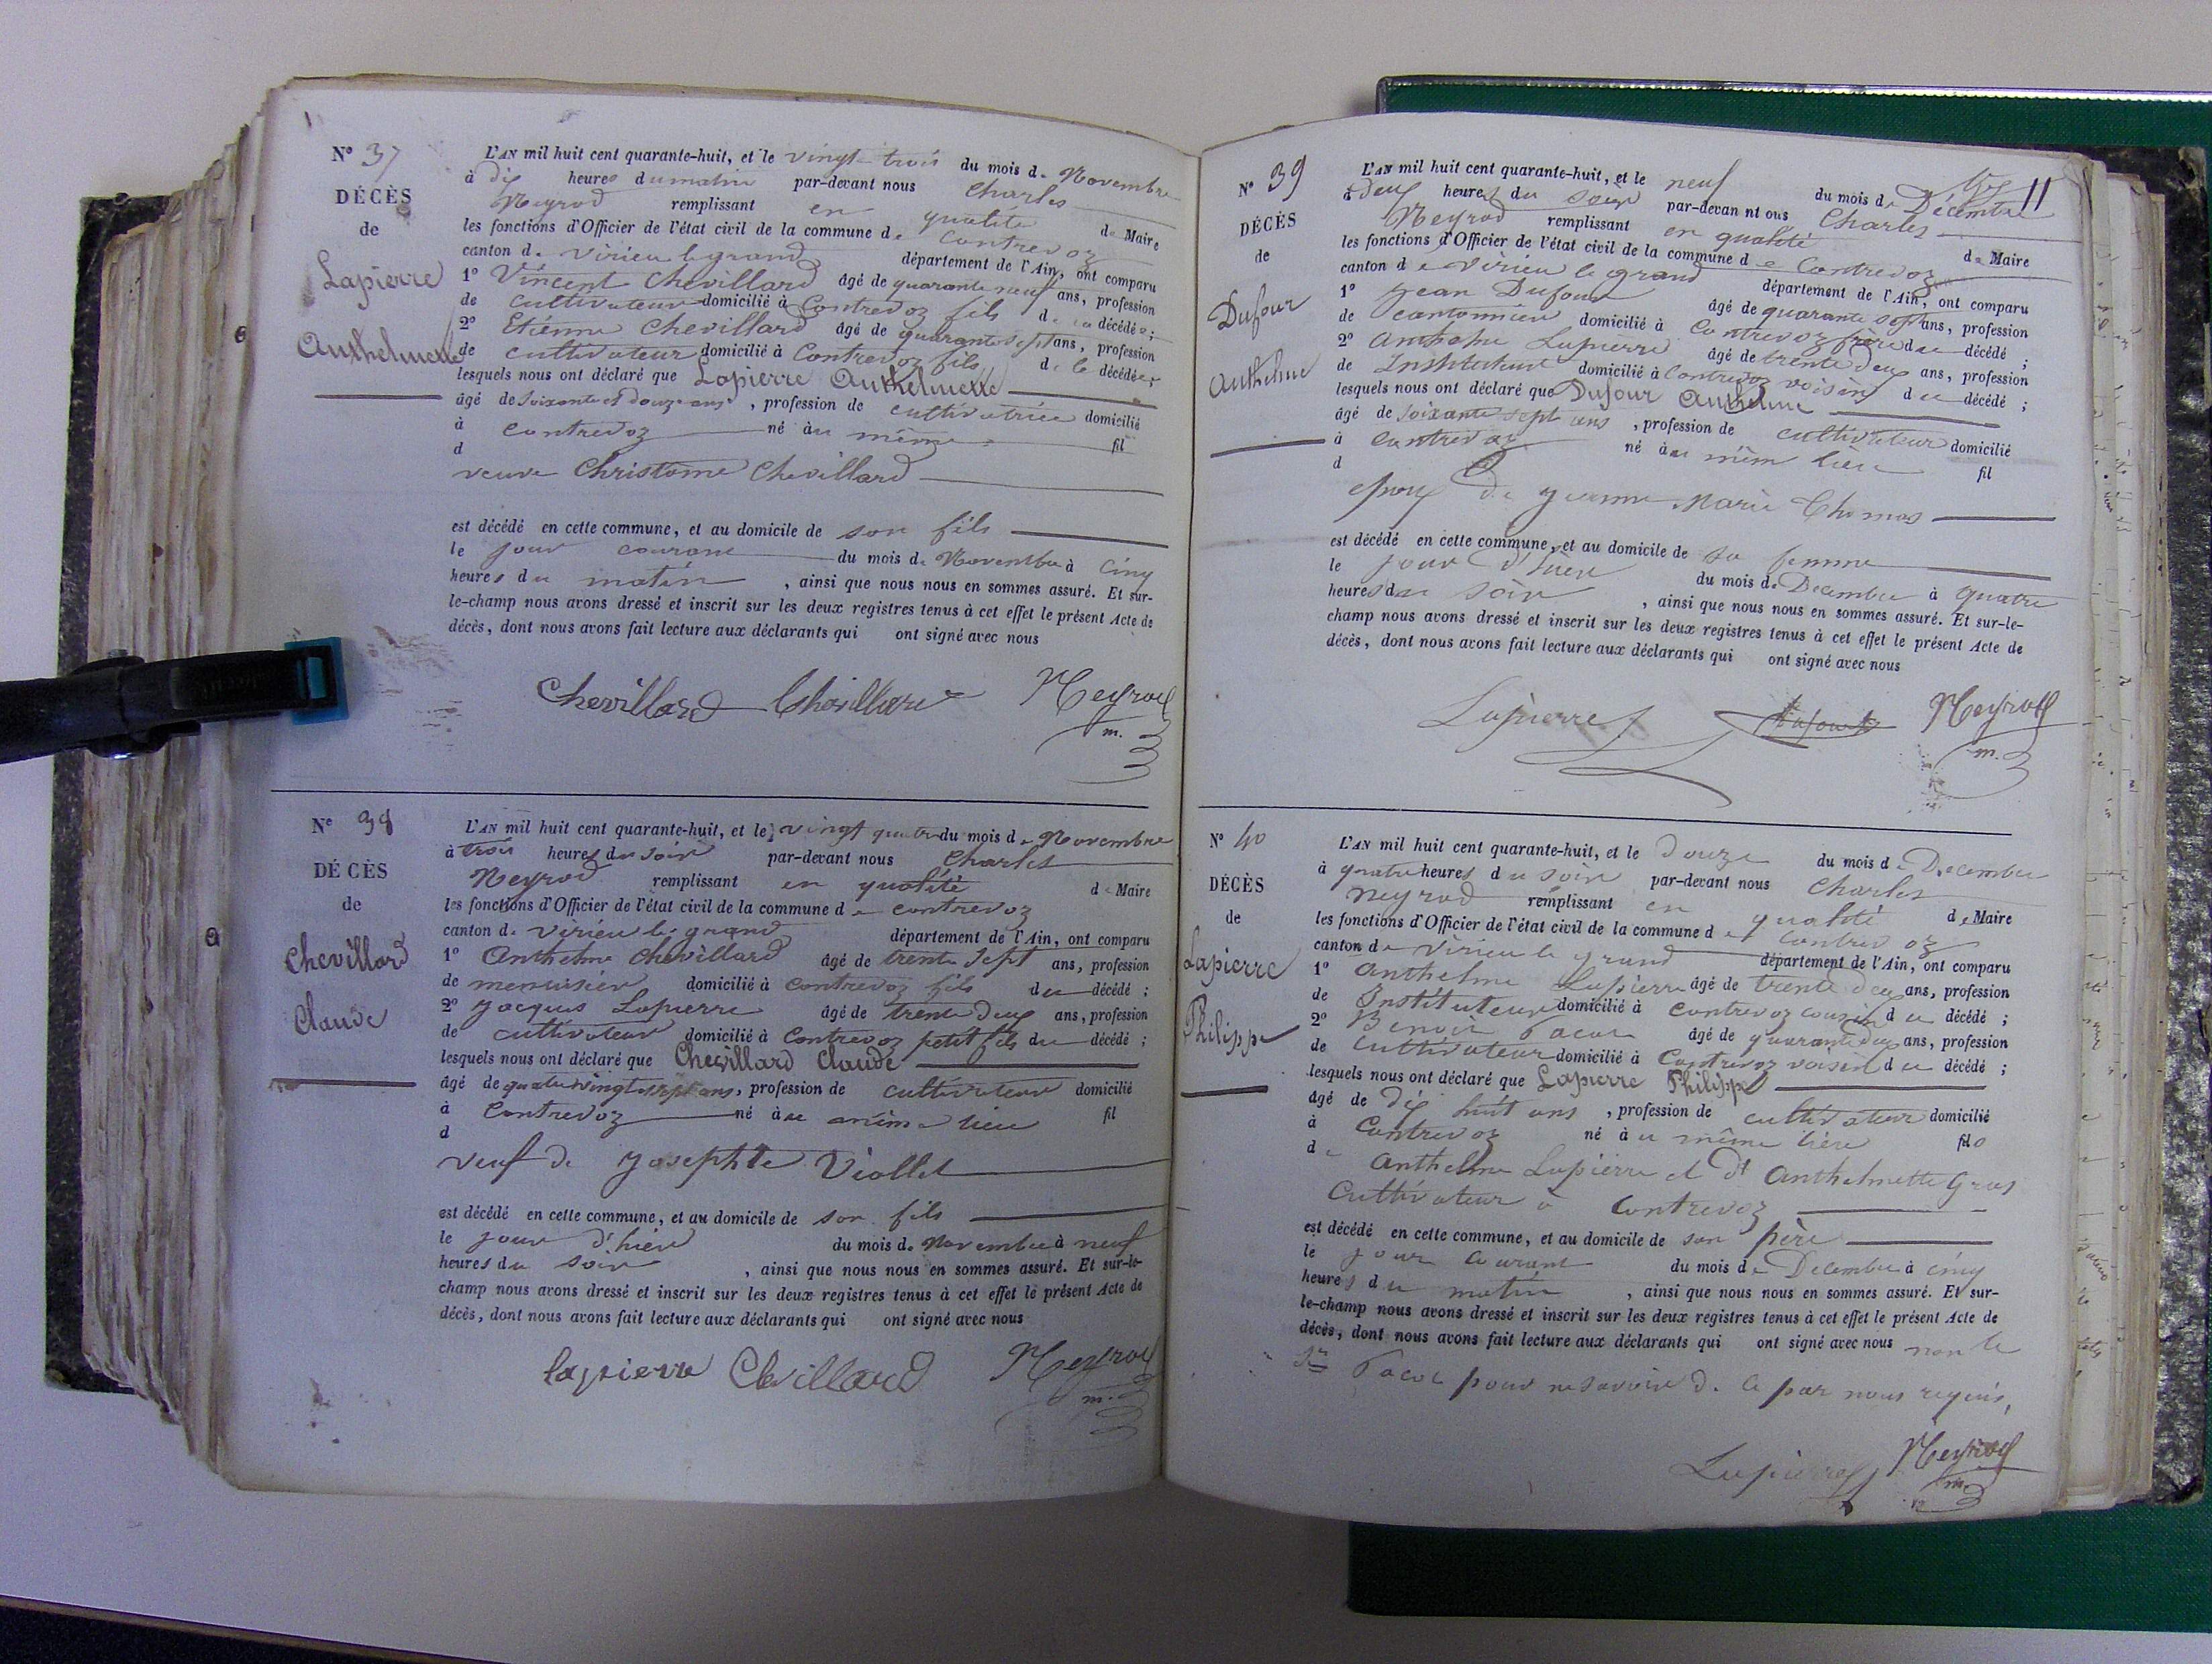 N° 37
DÉCÈS
de
Lapierre
Anthelmette
L'AN mil huit cent quarante-huit, et le vingt trois du mois de Novembre
à dix heures du matin par-devant nous Charles
Neyrod remplissant en qualité de Maire
les fonctions d'Officier de l'état civil de la commune de Contrevoz
canton de Virieu le grand département de l'Ain, ont comparu
1° Vincent Chevillard âgé de quarante neuf ans, profession
de cultivateur domicilié à Contrevoz fils de la décédée;
2° Etienne Chevillard âgé de quarante sept ans, profession
de cultivateur domicilié à Contrevoz fils de la décédée;
lesquels nous ont déclaré que Lapierre Anthelmette
âgé de soixante et douze ans, profession de cultivatrice domicilié
à Contrevoz né au même fil
d
veuve Christome Chevillard
est décédé en cette commune, et au domicile de son fils
le jour courant du mois de Novembre à cinq
heures du matin, ainsi que nous nous en sommes assuré. Et sur-
le-champ nous avons dressé et inscrit sur les deux registres tenus à cet effet le présent Acte de
décès, dont nous avons fait lecture aux déclarants qui ont signé avec nous
Chevillard Chevillard Neyrod
m.
N° 38
DÉCÈS
de
Chevillard
Claude
L'AN mil huit cent quarante-huit, et le vingt quatre du mois de Novembre
à trois heures du soir par-devant nous Charles
Neyrod remplissant en qualité de Maire
les fonctions d'Officier de l'état civil de la commune de contrevoz
canton de virieu le grand département de l'Ain, ont comparu
1° Anthelme Chevillard âgé de trente sept ans, profession
de menuisier domicilié à contrevoz fils du décédé;
2° Jacques Lapierre âgé de trente deux ans, profession
de cultivateur domicilié à Contrevoz petit fils du décédé;
lesquels nous ont déclaré que Chevillard Claude
âgé de quatre vingt sept ans, profession de cultivateur domicilié
à Contrevoz né au même lieu fil
d
veuf de Josephte Viollet
est décédé en cette commune, et au domicile de son fils
le jour d'hier du mois de Novembre à neuf
heures du soir, ainsi que nous nous en sommes assuré. Et sur-le-
champ nous avons dressé et inscrit sur les deux registres tenus à cet effet le présent Acte de
décès, dont nous avons fait lecture aux déclarants qui ont signé avec nous
lapierre Chevillard Neyrod
m.
11
N° 39
DÉCÈS
de
Dufour
Anthelme
L'AN mil huit cent quarante-huit, et le neuf du mois de Décembre
à deux heures du soir par-devan nt ous Charles
Neyrod remplissant en qualité de Maire
les fonctions d'Officier de l'état civil de la commune de Contrevoz
canton de virieu le grand département de l'Ain, ont comparu
1° Jean Dufour âgé de quarante sept ans, profession
de cantonnier domicilié à Contrevoz frère du décédé;
2° Anthelme Lapierre âgé de trente deux ans, profession
de Instituteur domicilié à Contrevoz voisin du décédé;
lesquels nous ont déclaré que Dufour Anthelme
âgé de soixante sept ans, profession de cultivateur domicilié
à Contrevoz né au même lieu fil
d
époux de Jeanne Marie Thomas
est décédé en cette commune, et au domicile de sa femme
le jour d'hier du mois de Décembre à quatre
heures du soir, ainsi que nous nous en sommes assuré. Et sur-le-
champ nous avons dressé et inscrit sur les deux registres tenus à cet effet le présent Acte de
décès, dont nous avons fait lecture aux déclarants qui ont signé avec nous
Lapierre Dufour Neyrod
m.
N° 40
DÉCÈS
de
Lapierre
Philippe
L'AN mil huit cent quarante-huit, et le Douze du mois de Décembre
à quatre heures du soir par-devant nous Charles
Neyrod remplissant en qualité de Maire
les fonctions d'Officier de l'état civil de la commune de Contrevoz
canton de Virieu le grand département de l'Ain, ont comparu
1° Anthelme Lapierre âgé de trente deux ans, profession
de Instituteur domicilié à Contrevoz cousin du décédé;
2° Benoit âgé de quarante deux ans, profession
de Cultivateur domicilié à Contrevoz voisin du décédé;
lesquels nous ont déclaré que Lapierre Philippe
âgé de dix huit ans, profession de cultivateur domicilié
à Contrevoz né au même lieu fils
de Anthelme Lapierre et dt Anthelmette Gros
Cultivateur à Contrevoz
est décédé en cette commune, et au domicile de son père
le jour courant du mois de Décembre à cinq
heures du matin, ainsi que nous nous en sommes assuré. Et sur-
le-champ nous avons dressé et inscrit sur les deux registres tenus à cet effet le présent Acte de
décès, dont nous avons fait lecture aux déclarants qui ont signé avec nous non le
Sr pour ne savoir de ce par nous requis,
Lapierre Neyrod
m.